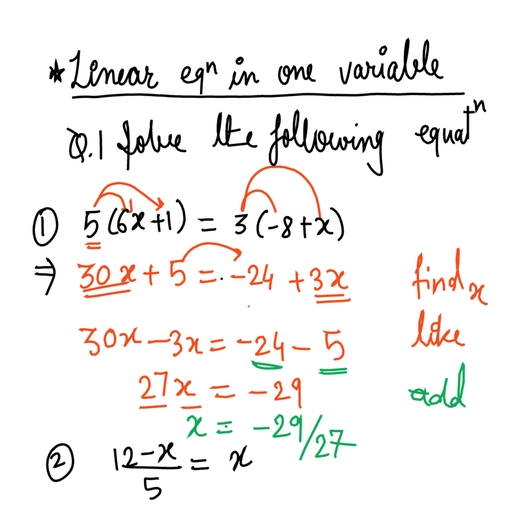 *Linear eqⁿ in one variable
Q.1 Solve the following equatⁿ
① 5(6x+1) = 3(-8+x)
⇒ 30x + 5 = -24 + 3x find x
30x - 3x = -24 - 5 like
27x = -29 add
x = -29/27
② 12-x/5 = x